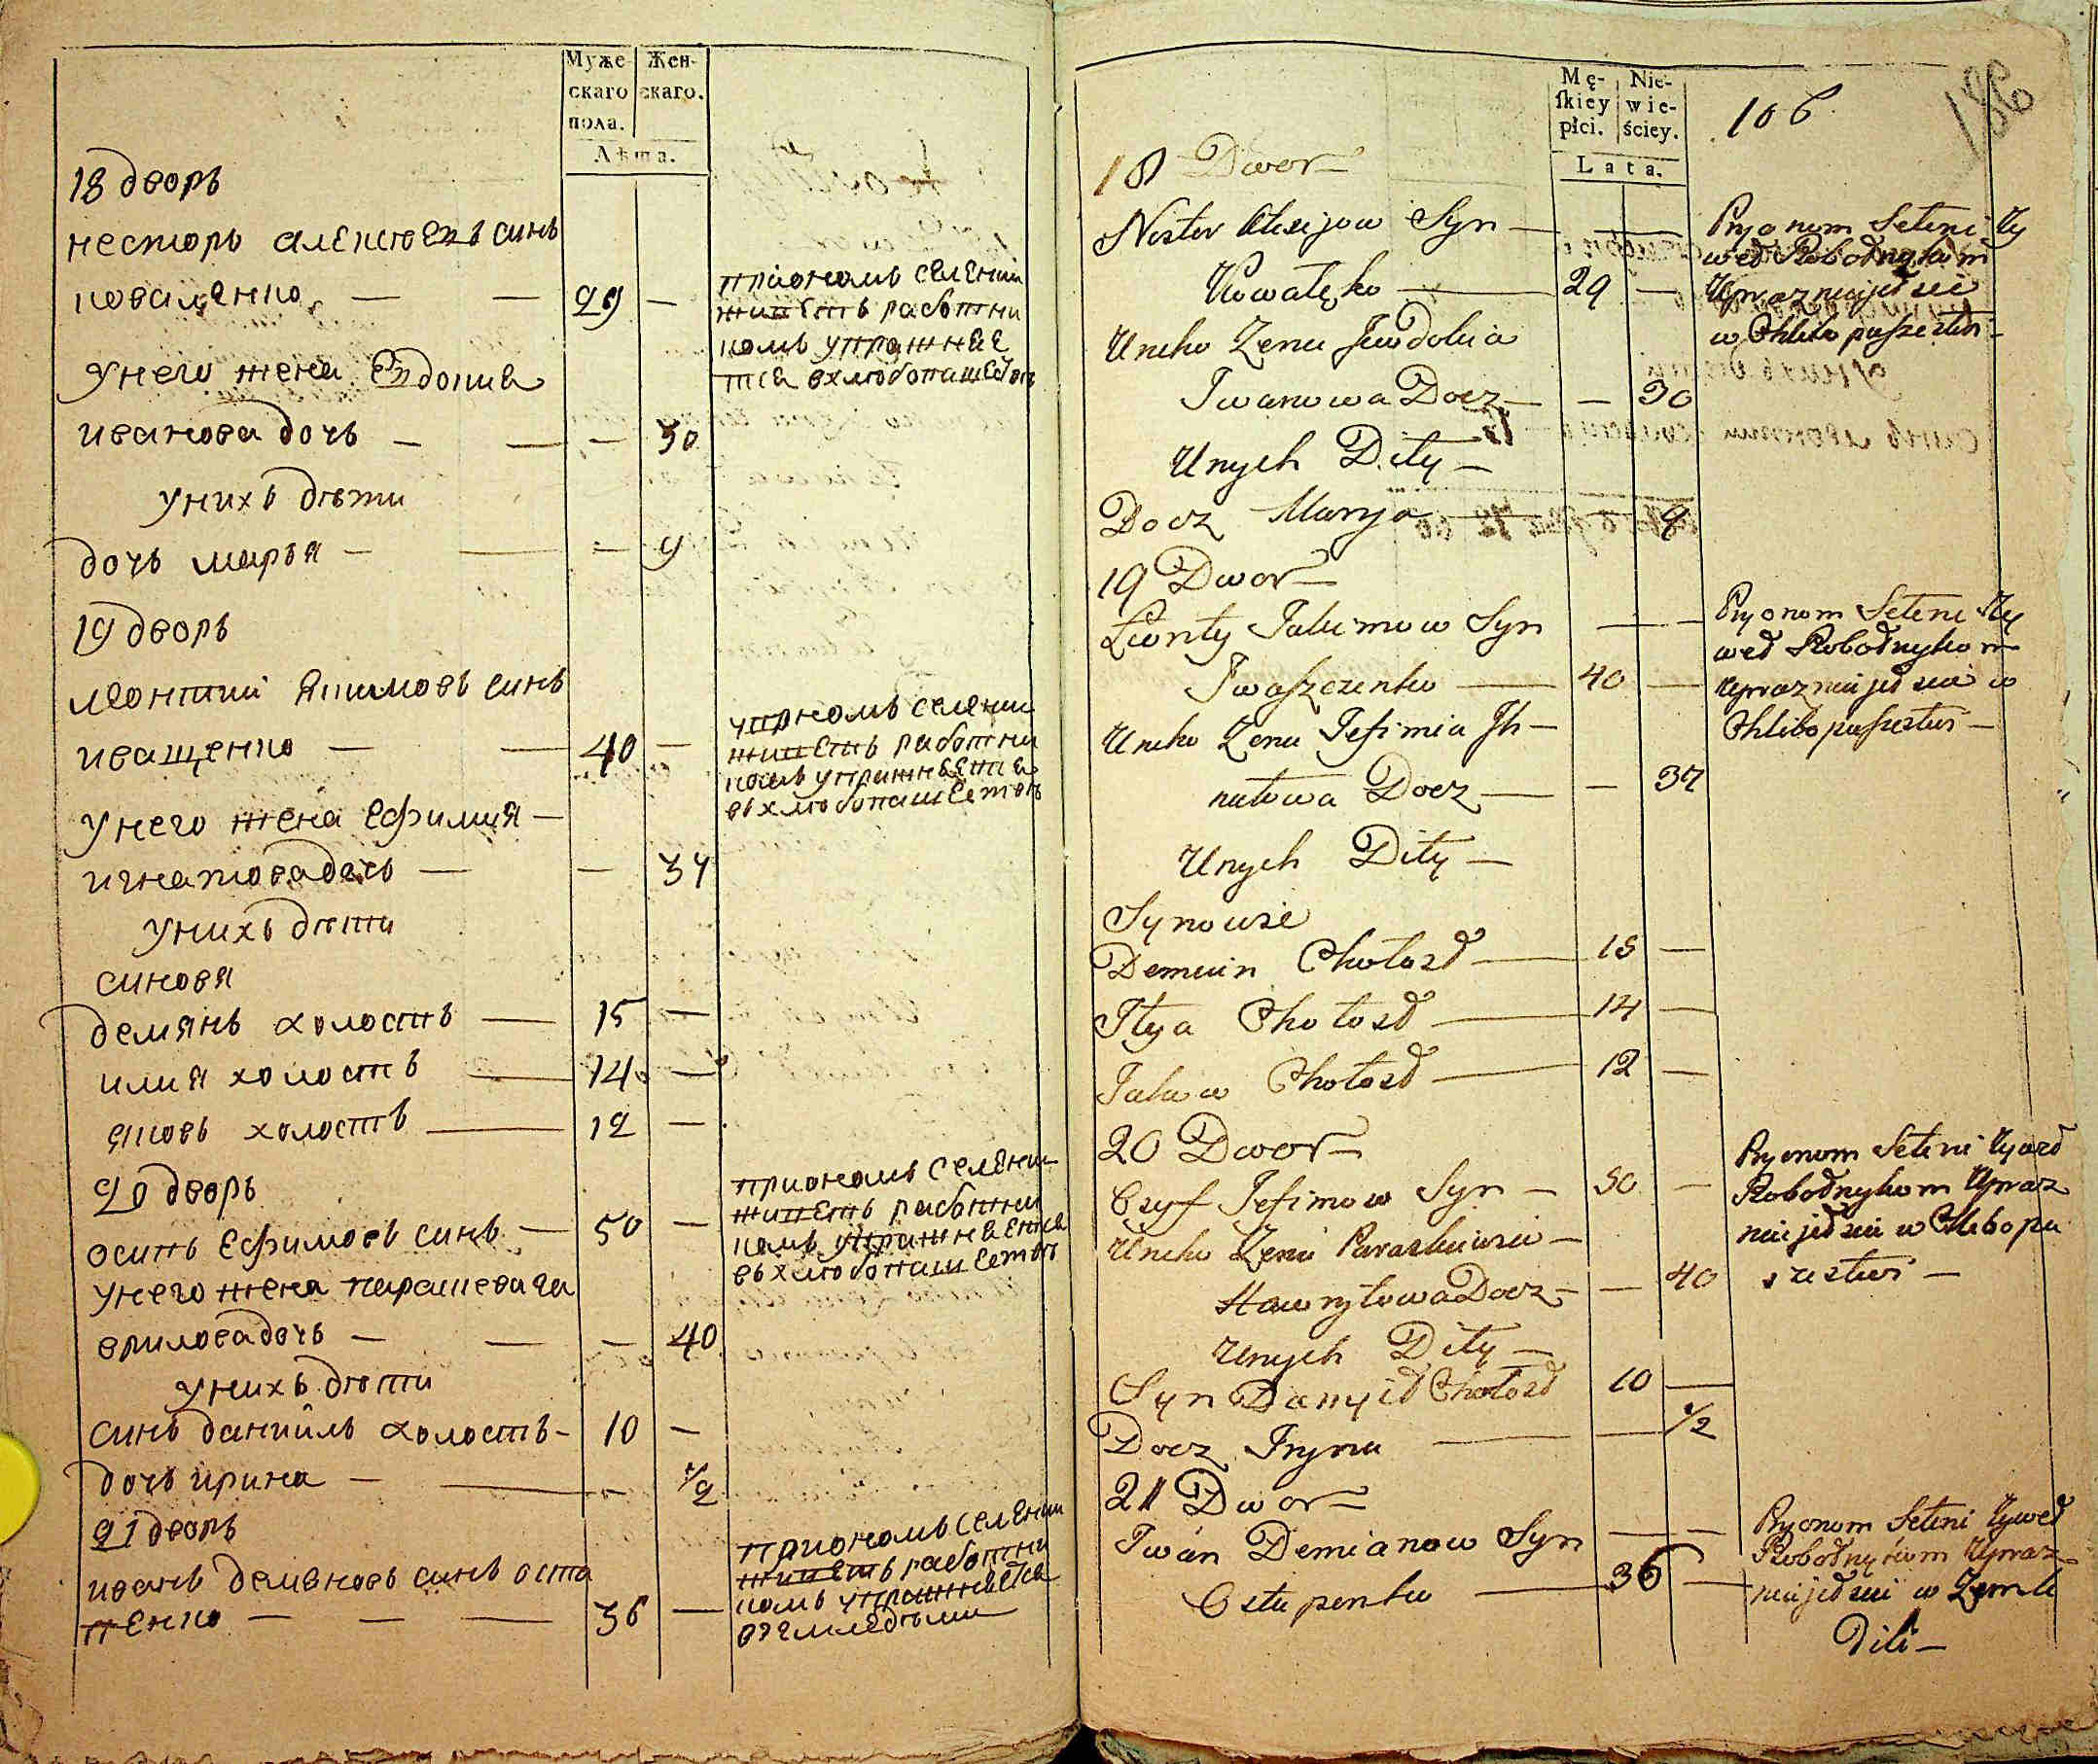 Муже-
скаго
пола.
Жен-
скаго.
Лѣта.
18 дворъ
несторъ алексѣевъ синъ
коваленко — — 29 —
пріономъ селении
житеть работни
комъ упражнѣе
тса вхлюбопашество
унего жена Евдокия
иванова дочь — — — 30
унихъ дѣти
дочь марья — — — 9
19 дворъ
леонтий якимовъ синъ
иващенко — — 40 —
упрномъ селении
житеть работни
комъ упражнѣетса
въ хлюбопашество
унего жена ефимия —
игнатовадочь — — 37
унихъ дѣти
синовя
демянъ холостъ — 15 —
илия холостъ — 14 —
яковъ холостъ — 12 —
20 дворъ
осипъ ефимовъ синъ — 50 —
приономъ селении
житеть работни
комъ упражнѣетса
въ хлюбопашество
унего жена парашевага
врилова дочь — — — 40
унихъ дѣти
синъ даниилъ холостъ — 10 —
дочь ирина — — 1/2
21 дворъ
иванъ демяновъ синъ оста
пенко — — — 36 —
приономъ селении
житеть работни
комъ упражнѣетса
вземледѣлии
Mę-
ſkiey
płci.
Nie-
wie-
ściey.
Lata.
106
186
18 Dwor —
Nestor Olexijow Syn — — —
Kowalęko — 29 —
Pryonom Seleni Ży
wed Robodnykom
Uprazniajed sia
w Chlibopaszestwi —
Uneho Żena Jewdokia
Iwanowa Docz — — 30
Unych Dity —
Docz Marya — 9
19 Dwor —
Łeonty Jakimow Syn — —
Iwaszczenko — 40 —
Pryonom Seleni Ży
wed Robodnykom
Uprazniajed sia w
Chlibopaszestwi —
Uneho Żena Jefimia Ih —
natowa Docz — — 37
Unych Dity —
Synowie
Demian Chołosd — 15 —
Ilya Chołosd — 14 —
Jakow Chołosd — 12 —
20 Dwor —
Osyf Jefimow Syn — 50 —
Pryonom Seleni Żywed
Robodnykom Upraz
niajed sia w Chlibopa
szestwi —
Uneho Żena Paraskiewia —
Hawryłowa Docz — — 40
Unych Dity —
Syn Danyił Chołosd 10 —
Docz Iryna — — 1/2
21 Dwor —
Iwan Demianow Syn — —
Ostapenko — 36 —
Pryonom Seleni Żywed
Robodnykom Upraz —
niajed sia w Zemle
Dili —